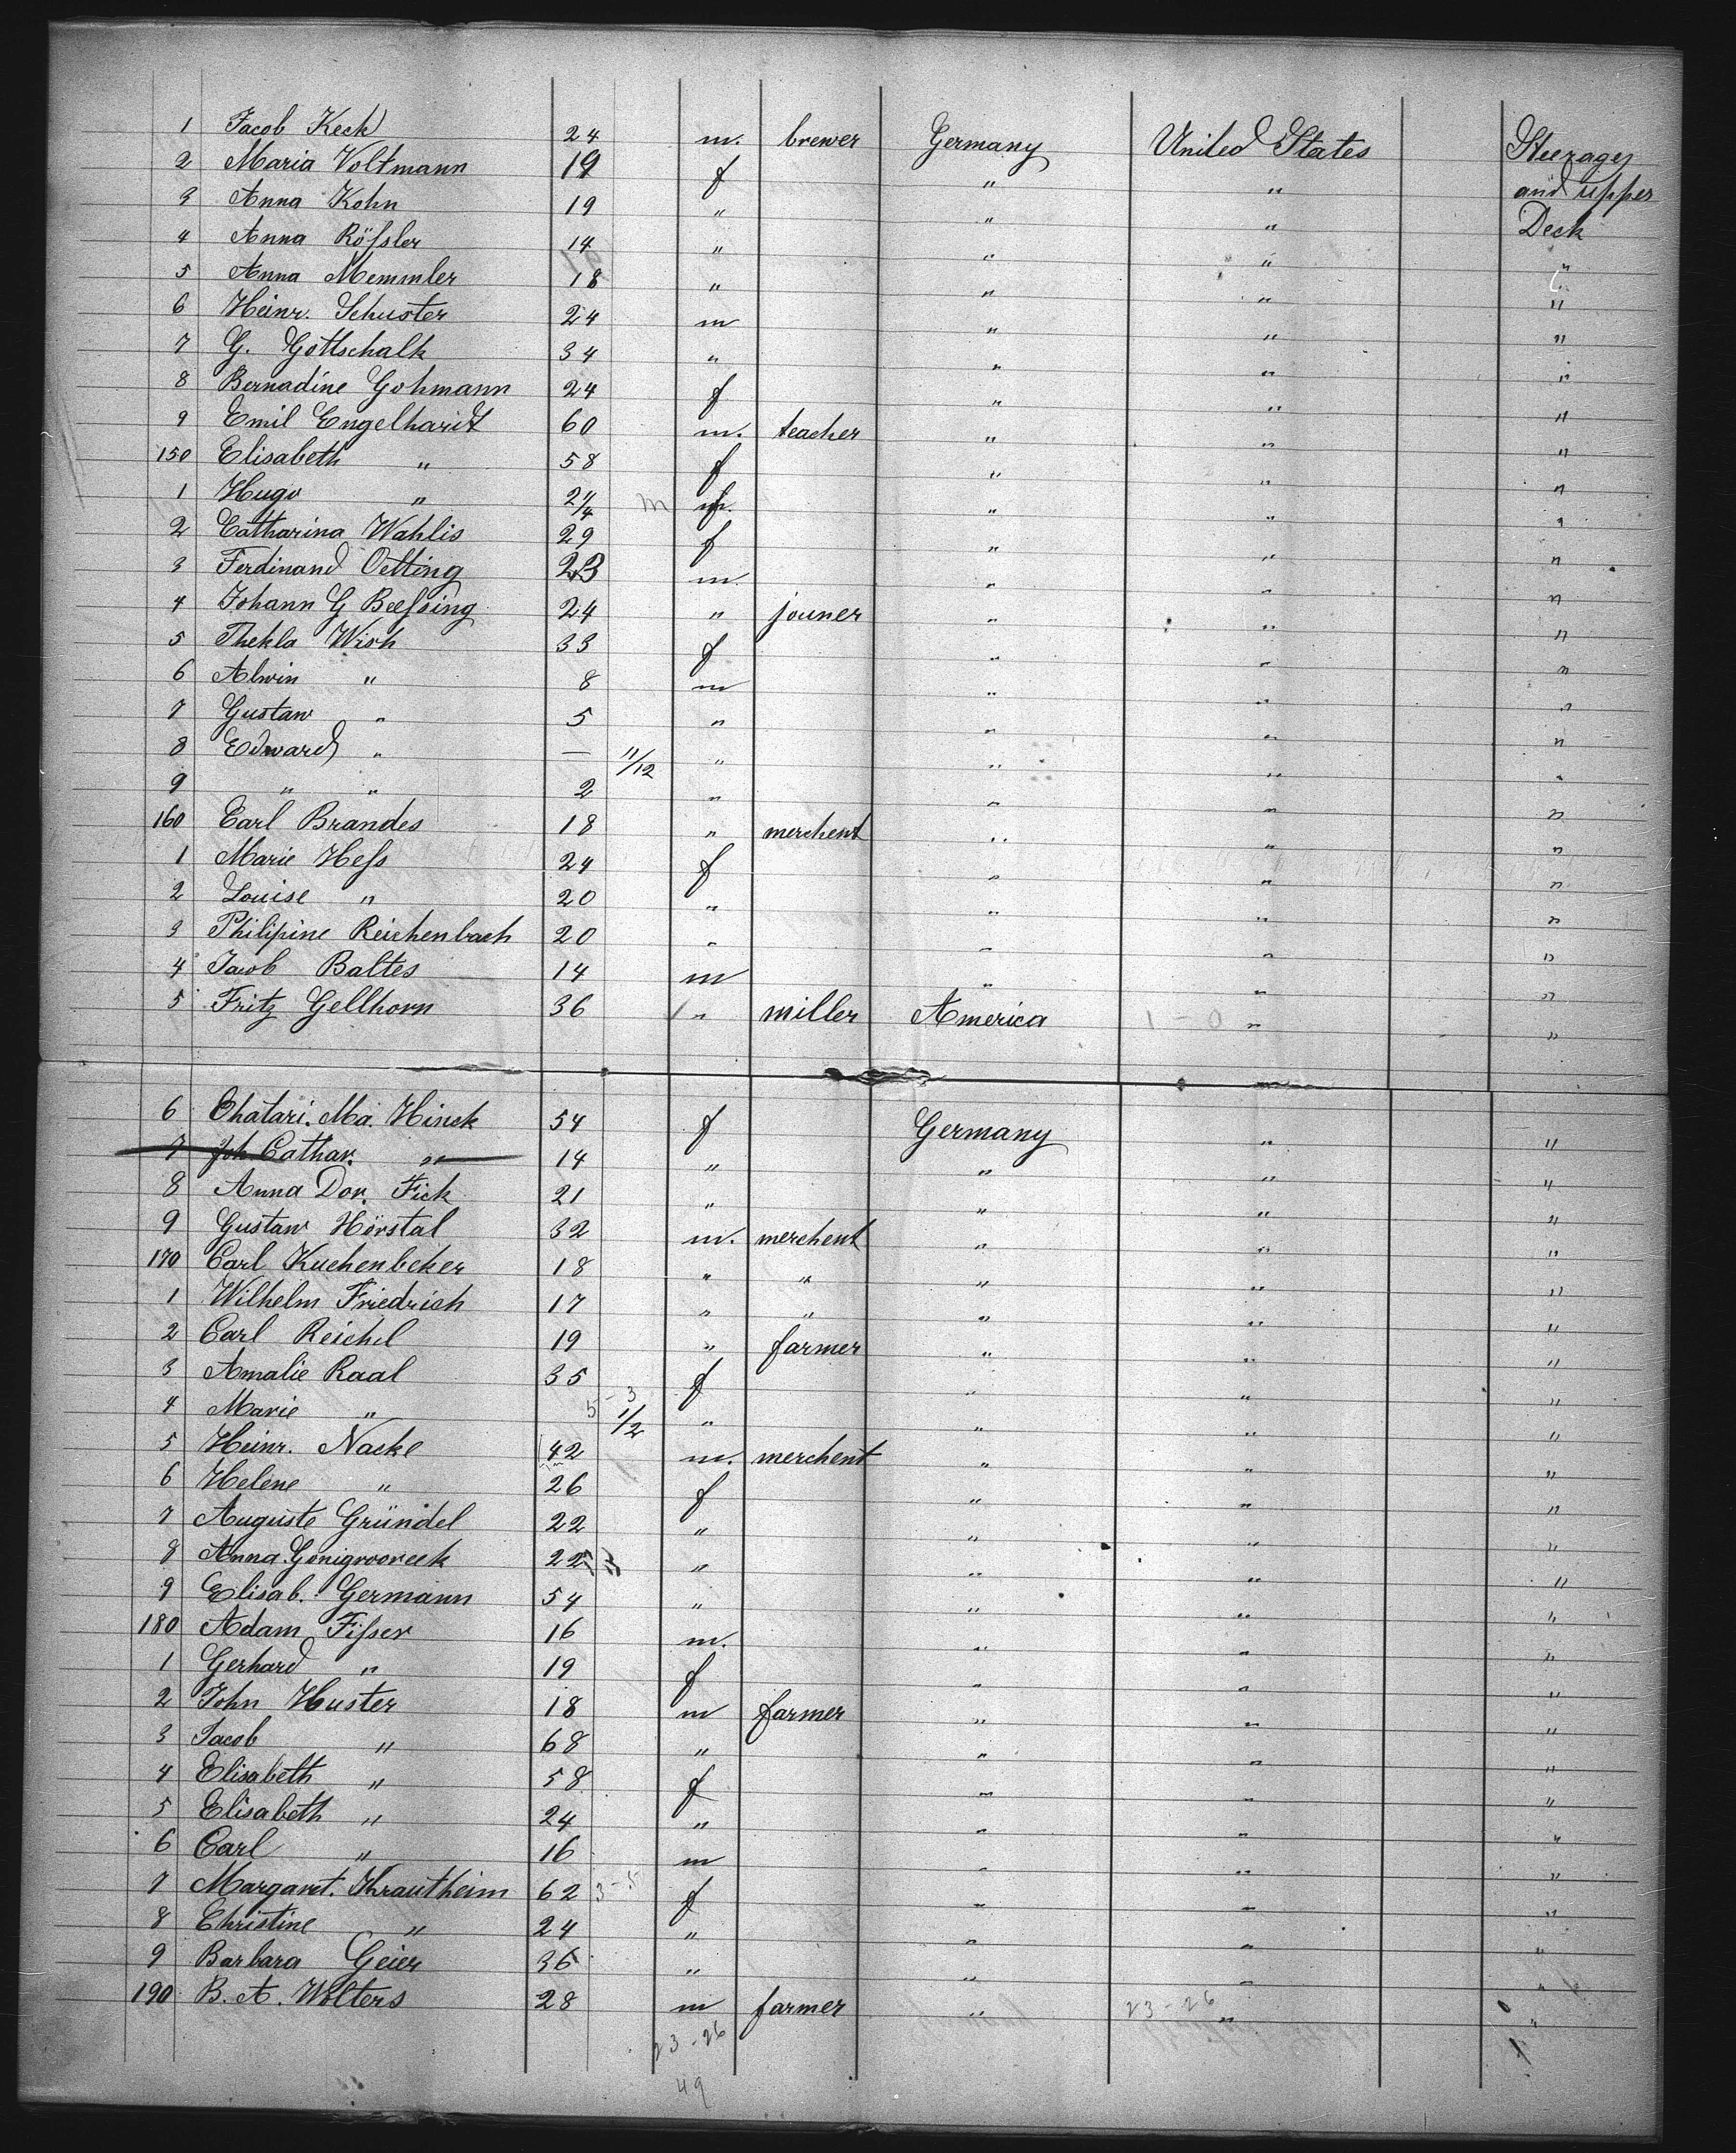 1 Jacob Keck 24 m. brewer Germany United States Steerage
2 Maria Voltmann 19 f " " and upper
3 Anna Kohn 19 " " " Deck
4 Anna Rößler 14 " " " "
5 Anna Memmler 18 " " " "
6 Heinr. Schuster 24 m " " "
7 G. Gottschalk 34 " " " "
8 Bernadine Gohmann 24 f " " "
9 Emil Engelhardt 60 m. teacher " " "
150 Elisabeth " 58 f " " "
1 Hugo " 2 1/4 m m. " " "
2 Catharina Wahlis 29 f " " "
3 Ferdinand Oetting 23 m. " " "
4 Johann G Beeßing 24 " jouner " " "
5 Thekla Wirk 33 f " " "
6 Alwin " 8 m " " "
7 Gustav " 5 " " " "
8 Edward " — 11/12 " " " "
9 " " 2 " " " "
160 Carl Brandes 18 " merchent " " "
1 Marie Heß 24 f " " "
2 Louise " 20 " " " "
3 Philipine Reichenbach 20 " " " "
4 Jacob Baltes 14 m " " "
5 Fritz Gellhorn 36 " miller America 1 - 0 " "
6 Chatari. Ma. Hinck 54 f Germany " "
7 Joh. Cathar. " 14 " " " "
8 Anna Dor. Fick 21 " " " "
9 Gustav Hörstal 32 m. merchent " " "
170 Carl Kuchenbeker 18 " " " " "
1 Wilhelm Friedrich 17 " " " " "
2 Carl Reichel 19 " farmer " " "
3 Amalie Raal 35 f " " "
5 - 3
4 Marie " 1/2 " " " "
5 Heinr. Nacke 42 m. merchent " " "
6 Helene " 26 f " " "
7 Auguste Gründel 22 " " " "
8 Anna 22 " " " "
9 Elisab. Germann 54 " " " "
180 Adam Fißer 16 m. " " "
1 Gerhard " 19 f " " "
2 John Huster 18 m farmer " " "
3 Jacob " 68 " " " "
4 Elisabeth " 58 f " " "
5 Elisabeth " 24 " " " "
6 Carl " 16 m " " "
7 Margaret. Krautheim 62 3-5 f " " "
8 Christine " 24 " " " "
9 Barbara Geier 36 " " " "
190 B. A. Wolters 28 m farmer " 23-26 " "
23-26
49